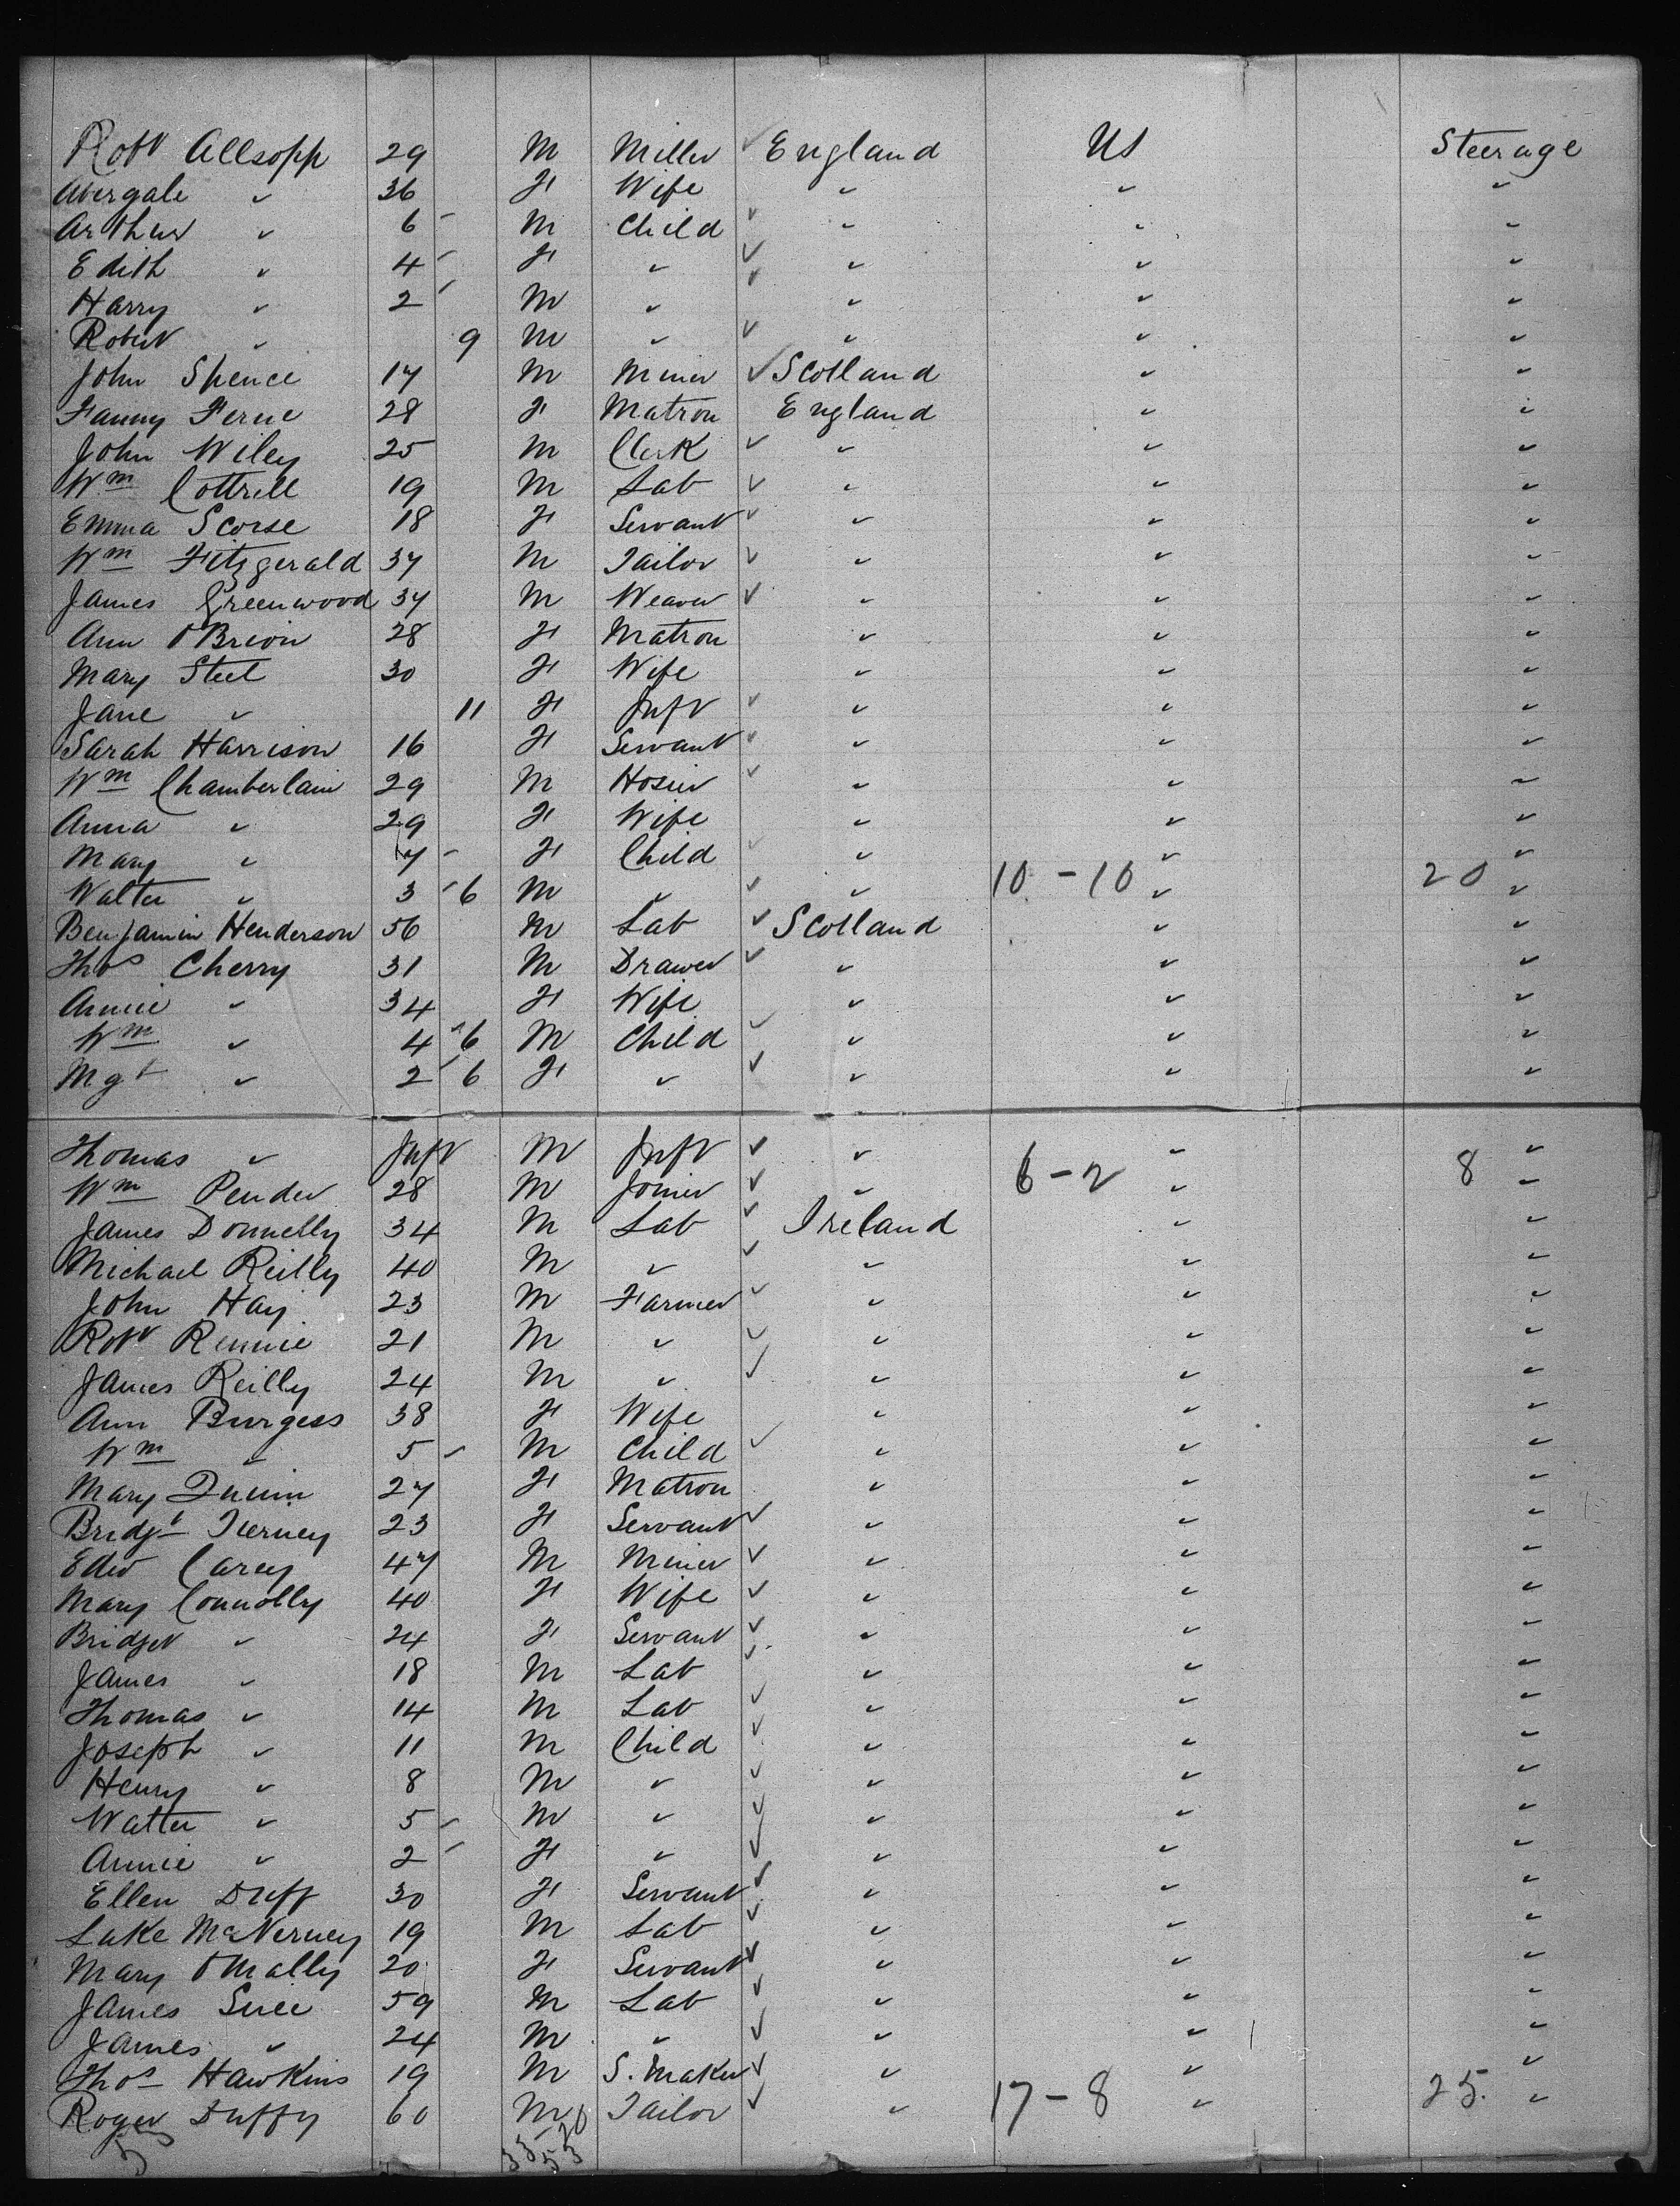 Robt Allsopp 29 M Miller ✓ England US Steerage
Abergale " 36 F Wife " " "
Arthur " 6 - M Child ✓ " " "
Edith " 4 - F " ✓ " " "
Harry " 2 - M " ✓ " " "
Robert " 9 M " ✓ " " "
John Spence 17 M Miner ✓ Scotland " "
Fanny Ferne 28 F Matron England " "
John Wiley 25 M Clerk ✓ " " "
Wm Cottrill 19 M Lab ✓ " " "
Emma Scorse 18 F Servant ✓ " " "
Wm Fitzgerald 37 M Tailor ✓ " " "
James Greenwood 37 M Weaver ✓ " " "
Ann O'Brien 28 F Matron " " "
Mary Steel 30 F Wife " " "
Jane " 11 F Inft ✓ " " "
Sarah Harrison 16 F Servant ✓ " " "
Wm Chamberlain 29 M Hosier ✓ " " "
Anna " 29 F Wife " " "
Mary " 7 - F Child ✓ " " "
Walter " 3 - 6 M " ✓ " 10 - 10 " 20 "
Benjamin Henderson 56 M Lab ✓ Scotland " "
Thos Cherry 31 M Drawer ✓ " " "
Annie " 34 F Wife " " "
Wm " 4 - 6 M Child ✓ " " "
Mgt " 2 - 6 F " ✓ " " "
Thomas " Inft M Inft ✓ " " "
Wm Pender 28 M Joiner ✓ " 6 - 2 " 8 "
James Donnelly 34 M Lab ✓ Ireland " "
Michael Reilly 40 M " ✓ " " "
John Hay 23 M Farmer ✓ " " "
Robt Rennie 21 M " ✓ " " "
James Reilly 24 M " ✓ " " "
Ann Burgess 38 F Wife " " "
Wm " 5 - M Child ✓ " " "
Mary Quinn 27 F Matron " " "
Bridgt Tierney 23 F Servant ✓ " " "
Edwd Carey 47 M Miner ✓ " " "
Mary Connolly 40 F Wife ✓ " " "
Bridget " 24 F Servant ✓ " " "
James " 18 M Lab ✓ " " "
Thomas " 14 M Lab ✓ " " "
Joseph " 11 M Child ✓ " " "
Henry " 8 M " ✓ " " "
Walter " 5 - M " ✓ " " "
Annie " 2 - F " ✓ " " "
Ellen Duff 30 F Servant ✓ " " "
Luke McNerney 19 M Lab ✓ " " "
Mary O'Mally 20 F Servant ✓ " " "
James Suee 59 M Lab ✓ " " "
James " 24 M " ✓ " " "
Thos Hawkins 19 M S. Maker ✓ " " "
Roger Duffy 60 M Tailor ✓ " 17 - 8 " 25 "
53 33 - 20
53